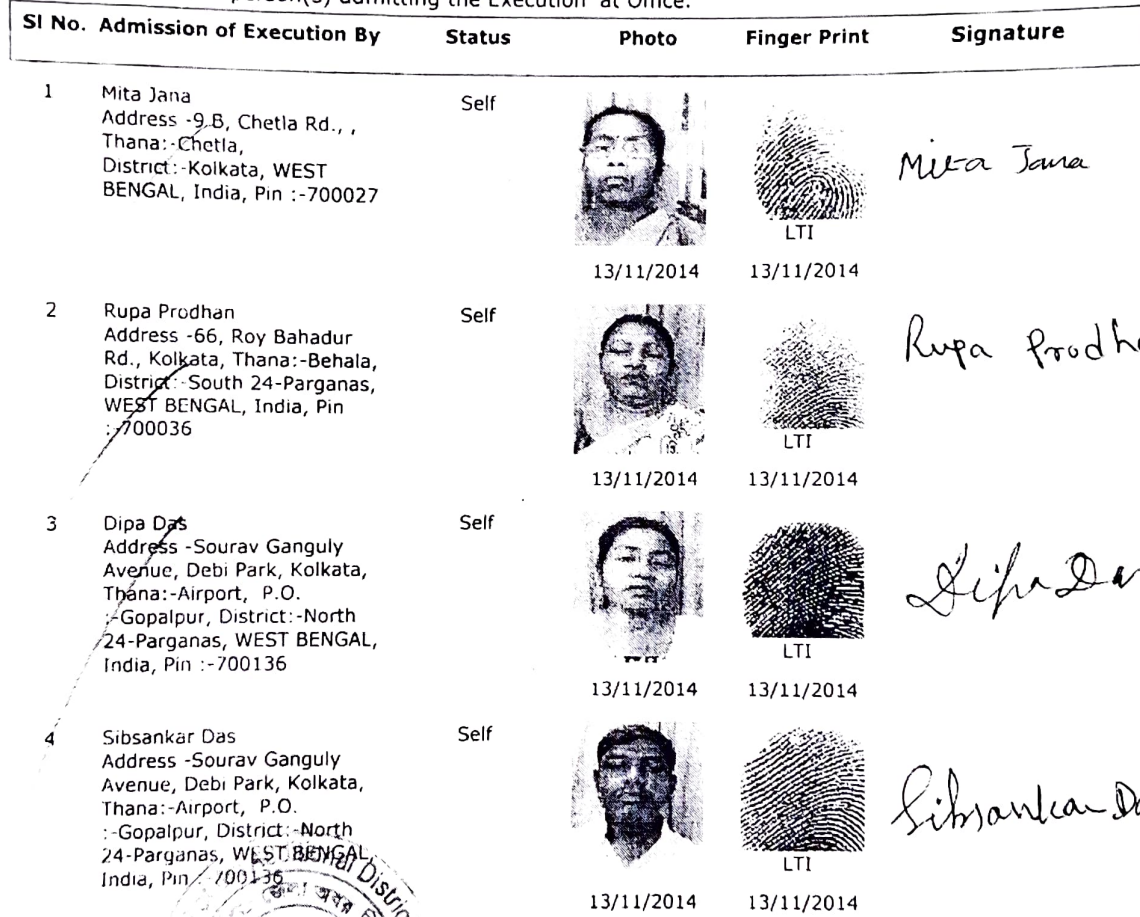 person(s) admitting the Execution at Office.
Sl No. Admission of Execution By Status Photo Finger Print Signature
1 Mita Jana Self
Address -9 B, Chetla Rd., ,
Thana:-Chetla,
District:-Kolkata, WEST
BENGAL, India, Pin :-700027
Mita Jana
LTI
13/11/2014 13/11/2014
2 Rupa Prodhan Self
Address -66, Roy Bahadur
Rd., Kolkata, Thana:-Behala,
District:-South 24-Parganas,
WEST BENGAL, India, Pin
:-700036
Rupa Prodh
LTI
13/11/2014 13/11/2014
3 Dipa Das Self
Address -Sourav Ganguly
Avenue, Debi Park, Kolkata,
Thana:-Airport, P.O.
:-Gopalpur, District:-North
24-Parganas, WEST BENGAL,
India, Pin :-700136
Dipa Da
LTI
13/11/2014 13/11/2014
4 Sibsankar Das Self
Address -Sourav Ganguly
Avenue, Debi Park, Kolkata,
Thana:-Airport, P.O.
:-Gopalpur, District:-North
24-Parganas, WEST BENGAL,
India, Pin :-700136
Sibsankar Da
LTI
13/11/2014 13/11/2014